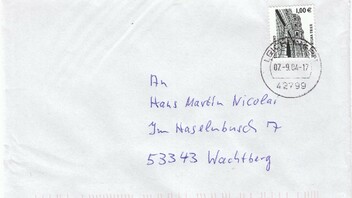 1,00 €
07.-9.04-17
42799
An
Hans Martin Nicolai
Im Haselnbusch 7
53343 Wachtberg